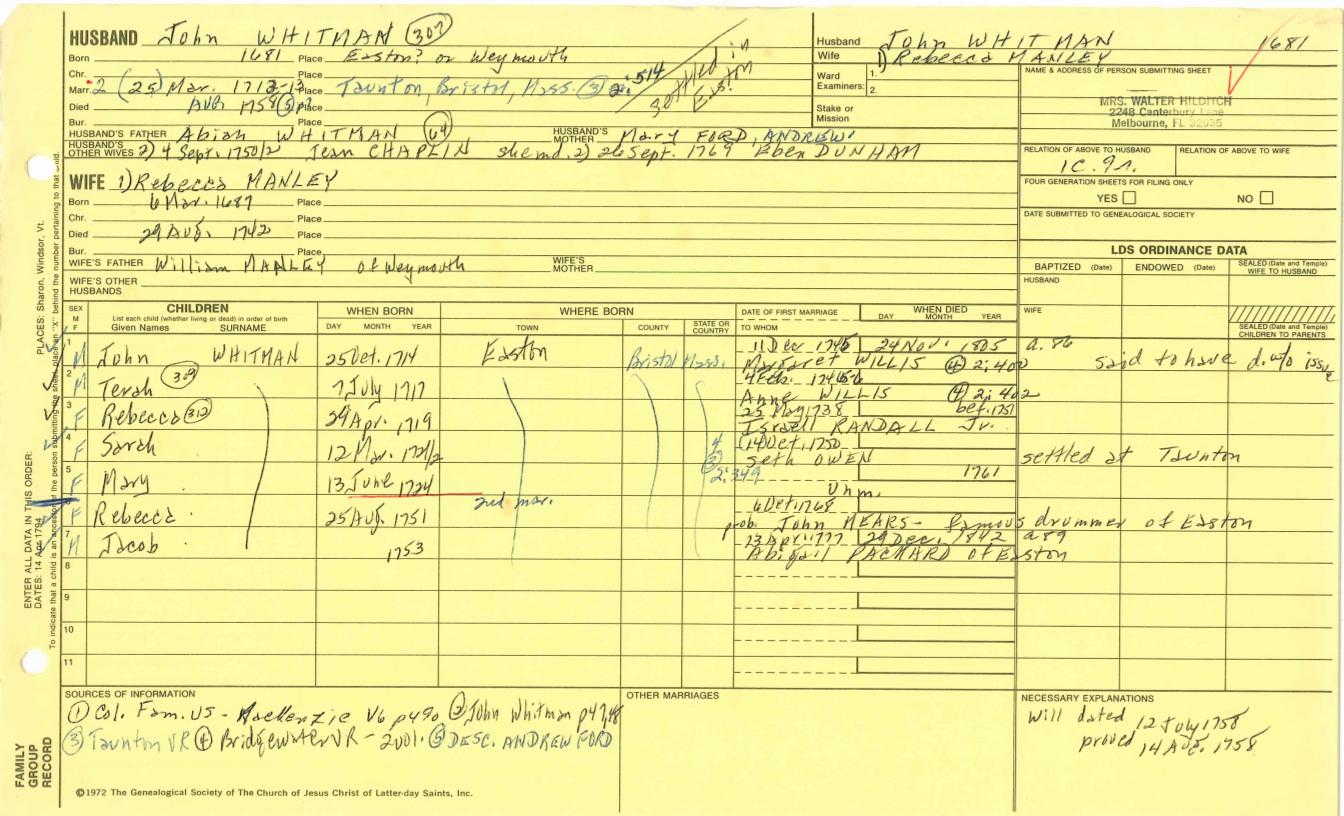 HUSBAND John WHITMAN (307)
Born 1681 Place Easton? or Weymouth
Chr. Place
Marr. 2 (25) Mar. 1712-13 Place Taunton, Bristol, Mass. (3) 2:514
settled in Easton
Died Aug 1758 (5) Place
Bur. Place
HUSBAND'S FATHER Abiah WHITMAN (64) HUSBAND'S MOTHER Mary FORD, ANDREW
HUSBAND'S OTHER WIVES 2) 4 Sept. 1750/2 Jean CHAPLIN she md. 2) 26 Sept. 1769 Eben DUNHAM
WIFE 1) Rebecca MANLEY
Born 6 Mar. 1687 Place
Chr. Place
Died 29 Aug. 1742 Place
Bur. Place
WIFE'S FATHER William MANLEY of Weymouth WIFE'S MOTHER
WIFE'S OTHER HUSBANDS
Husband John WHITMAN 1681
Wife 1) Rebecca MANLEY
Ward Examiners: 1. 2.
Stake or Mission
NAME & ADDRESS OF PERSON SUBMITTING SHEET
MRS. WALTER HILDITCH
2248 Canterbury Lane
Melbourne, FL 32935
RELATION OF ABOVE TO HUSBAND RELATION OF ABOVE TO WIFE
1C. 9r.
FOUR GENERATION SHEETS FOR FILING ONLY
YES NO
DATE SUBMITTED TO GENEALOGICAL SOCIETY
LDS ORDINANCE DATA
BAPTIZED (Date) ENDOWED (Date) SEALED (Date and Temple) WIFE TO HUSBAND
HUSBAND
WIFE
SEALED (Date and Temple) CHILDREN TO PARENTS
SEX M F CHILDREN WHEN BORN WHERE BORN DATE OF FIRST MARRIAGE WHEN DIED
List each child (whether living or dead) in order of birth
Given Names SURNAME DAY MONTH YEAR TOWN COUNTY STATE OR COUNTRY TO WHOM DAY MONTH YEAR
1 M John WHITMAN 25 Oct. 1714 Easton Bristol Mass. 11 Dec 1745 24 Nov. 1805 a.86
Margaret WILLIS (4) 2:402 said to have d. w/o issue
2 M Terah (309) 7 July 1717 4 Feb. 1745-6
Anne WILLIS (4) 2:402
3 F Rebecca (312) 29 Apr. 1719 25 May 1738 bef. 1751
Israell RANDALL Jr.
4 F Sarah 12 Mar. 1721/2 (14) Oct. 1750
Seth OWEN settled at Taunton
4 (3) 2:349
5 F Mary 13 June 1724 1761
Unm.
2nd mar.
F Rebecca 25 Aug. 1751 6 Oct. 1768
prob. John MEARS - famous drummer of Easton
7 M Jacob 1753 13 Apr. 1777 29 Dec. 1842 a 89
Abigail PACKARD of Easton
8
9
10
11
SOURCES OF INFORMATION
(1) Col. Fam. US - MacKenzie V6 p490 (2) John Whitman p47,48
(3) Taunton VR (4) Bridgewater VR - 2 vol. (5) DESC. ANDREW FORD
OTHER MARRIAGES
NECESSARY EXPLANATIONS
Will dated 12 July 1758
proved 14 Aug. 1758
©1972 The Genealogical Society of The Church of Jesus Christ of Latter-day Saints, Inc.
FAMILY GROUP RECORD
ENTER ALL DATA IN THIS ORDER:
DATES: 14 Apr 1794 PLACES: Sharon, Windsor, Vt.
To indicate that a child is an ancestor of the person submitting the sheet, place an "X" behind the number pertaining to that child.